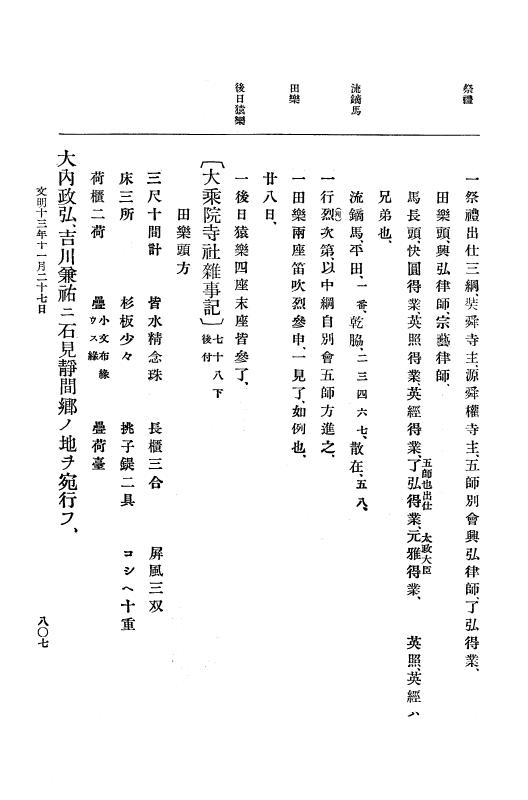 祭禮
一祭禮出仕三綱奘舜寺主、源舜權寺主、五師別會興弘律師、了弘得業、
田樂頭、興弘律師、宗藝律師、
馬長頭、快圓得業、英照得業、英經得業、了弘得業、五師也出仕元雅得業、太政大臣英照、英經ハ
兄弟也、
流鏑馬
流鏑馬、平田、一番、乾脇、二三四六七、散在、五八、
一行烈(列)次第、以中綱自別會五師方進之、
田樂
一田樂兩座笛吹烈參申、一見了、如例也、
廿八日、
後日猿樂
一後日猿樂四座末座皆參了、
〔大乘院寺社雜事記〕七十八下後付
田樂頭方
三尺十間計　皆水精念珠　長櫃三合　屏風三双
床三所　杉板少々　挑子鍰二具　コシヘ十重
荷櫃二荷　疊小文布緣ウス緣　疊荷臺
大内政弘、吉川兼祐ニ石見靜間郷ノ地ヲ宛行フ、
文明十三年十一月二十七日
八〇七